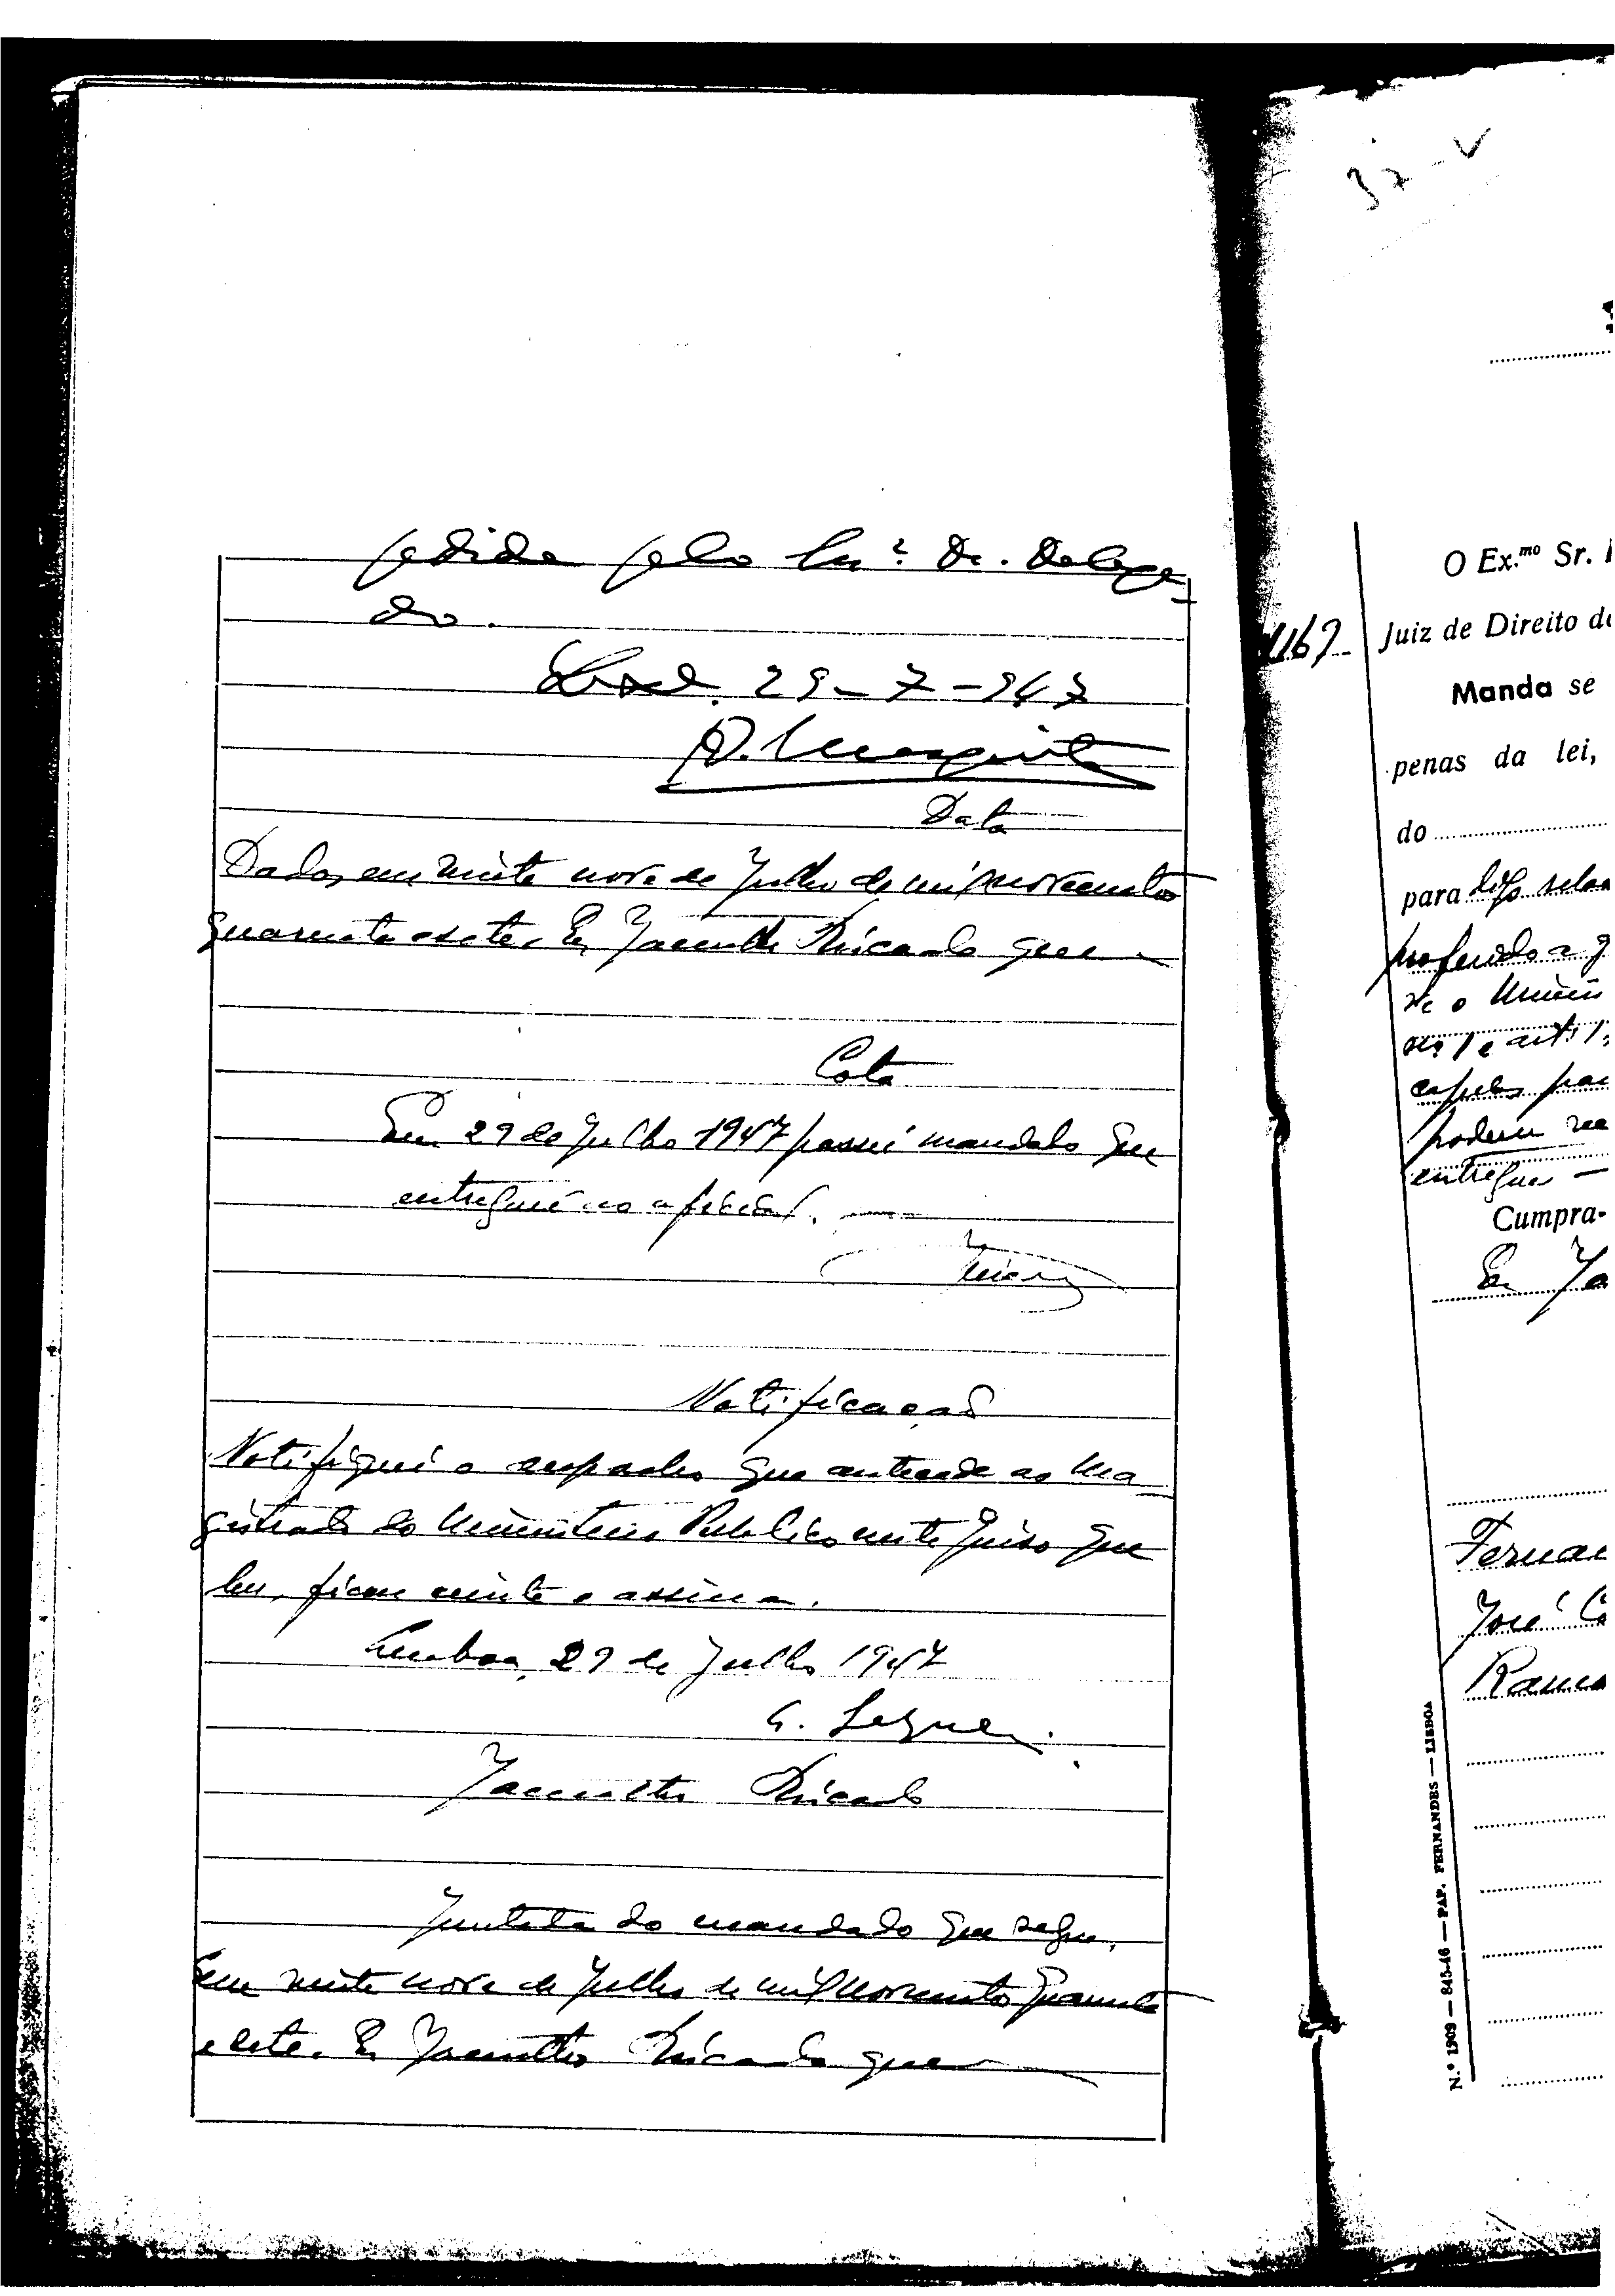 pedida pelo Dr. Delega
do.
29-7-947
Data
Dados em vinte nove de Julho de mil novecentos
quarenta e sete. Eu Jacintho Ricardo que
Cota
Em 29 de Julho 1947 passei mandado que
entreguei ao oficial.
Notificação
Notifiquei o despacho que antecede ao Ma
gistrado do Ministerio Publico neste Juizo que
leu, ficou ciente e assina.
Lisboa, 29 de Julho 1947
Jacintho Ricardo
Juntada do mandado que segue.
Em vinte nove de Julho de mil novecentos quarenta
e sete. Eu Jacintho Ricardo que
37-V
O Ex.mo Sr.
Juiz de Direito d
Manda se
penas da lei,
do
para
proferido a
o
e art.
podem
entregue —
Cumpra-
Eu Ja
Fernan
José
Ramo
N.º 1909 — 845-46 — PAP. FERNANDES — LISBOA